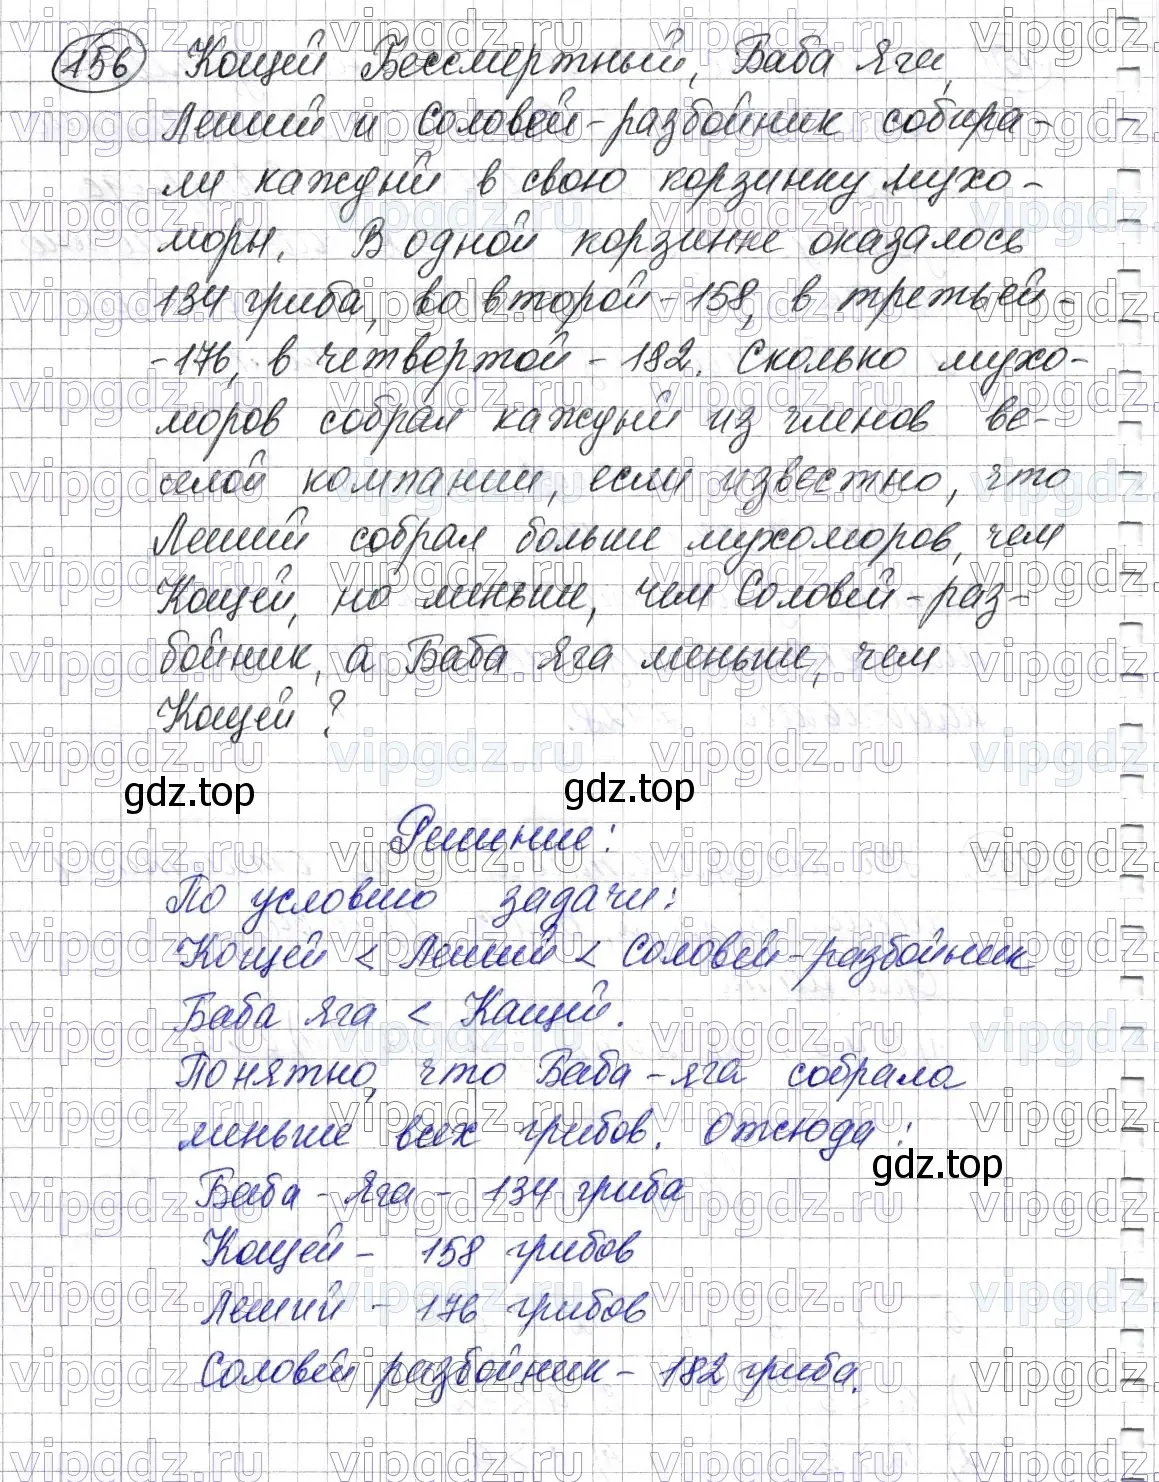 156 Кощей Бессмертный, Баба Яга,
Леший и Соловей-разбойник собира-
ли каждый в свою корзинку мухо-
моры. В одной корзинке оказалось
134 гриба, во второй - 158, в третьей -
- 176, в четвертой - 182. Сколько мухо-
моров собрал каждый из членов ве-
селой компании, если известно, что
Леший собрал больше мухоморов, чем
Кощей, но меньше, чем Соловей-раз-
бойник, а Баба Яга меньше, чем
Кощей?
gdz.top gdz.top
Решение:
По условию задачи:
Кощей < Леший < Соловей-разбойник
Баба Яга < Кощей.
Понятно, что Баба-яга собрала
меньше всех грибов. Отсюда:
gdz.top
Баба-Яга - 134 гриба
Кощей - 158 грибов
Леший - 176 грибов
Соловей разбойник - 182 гриба.